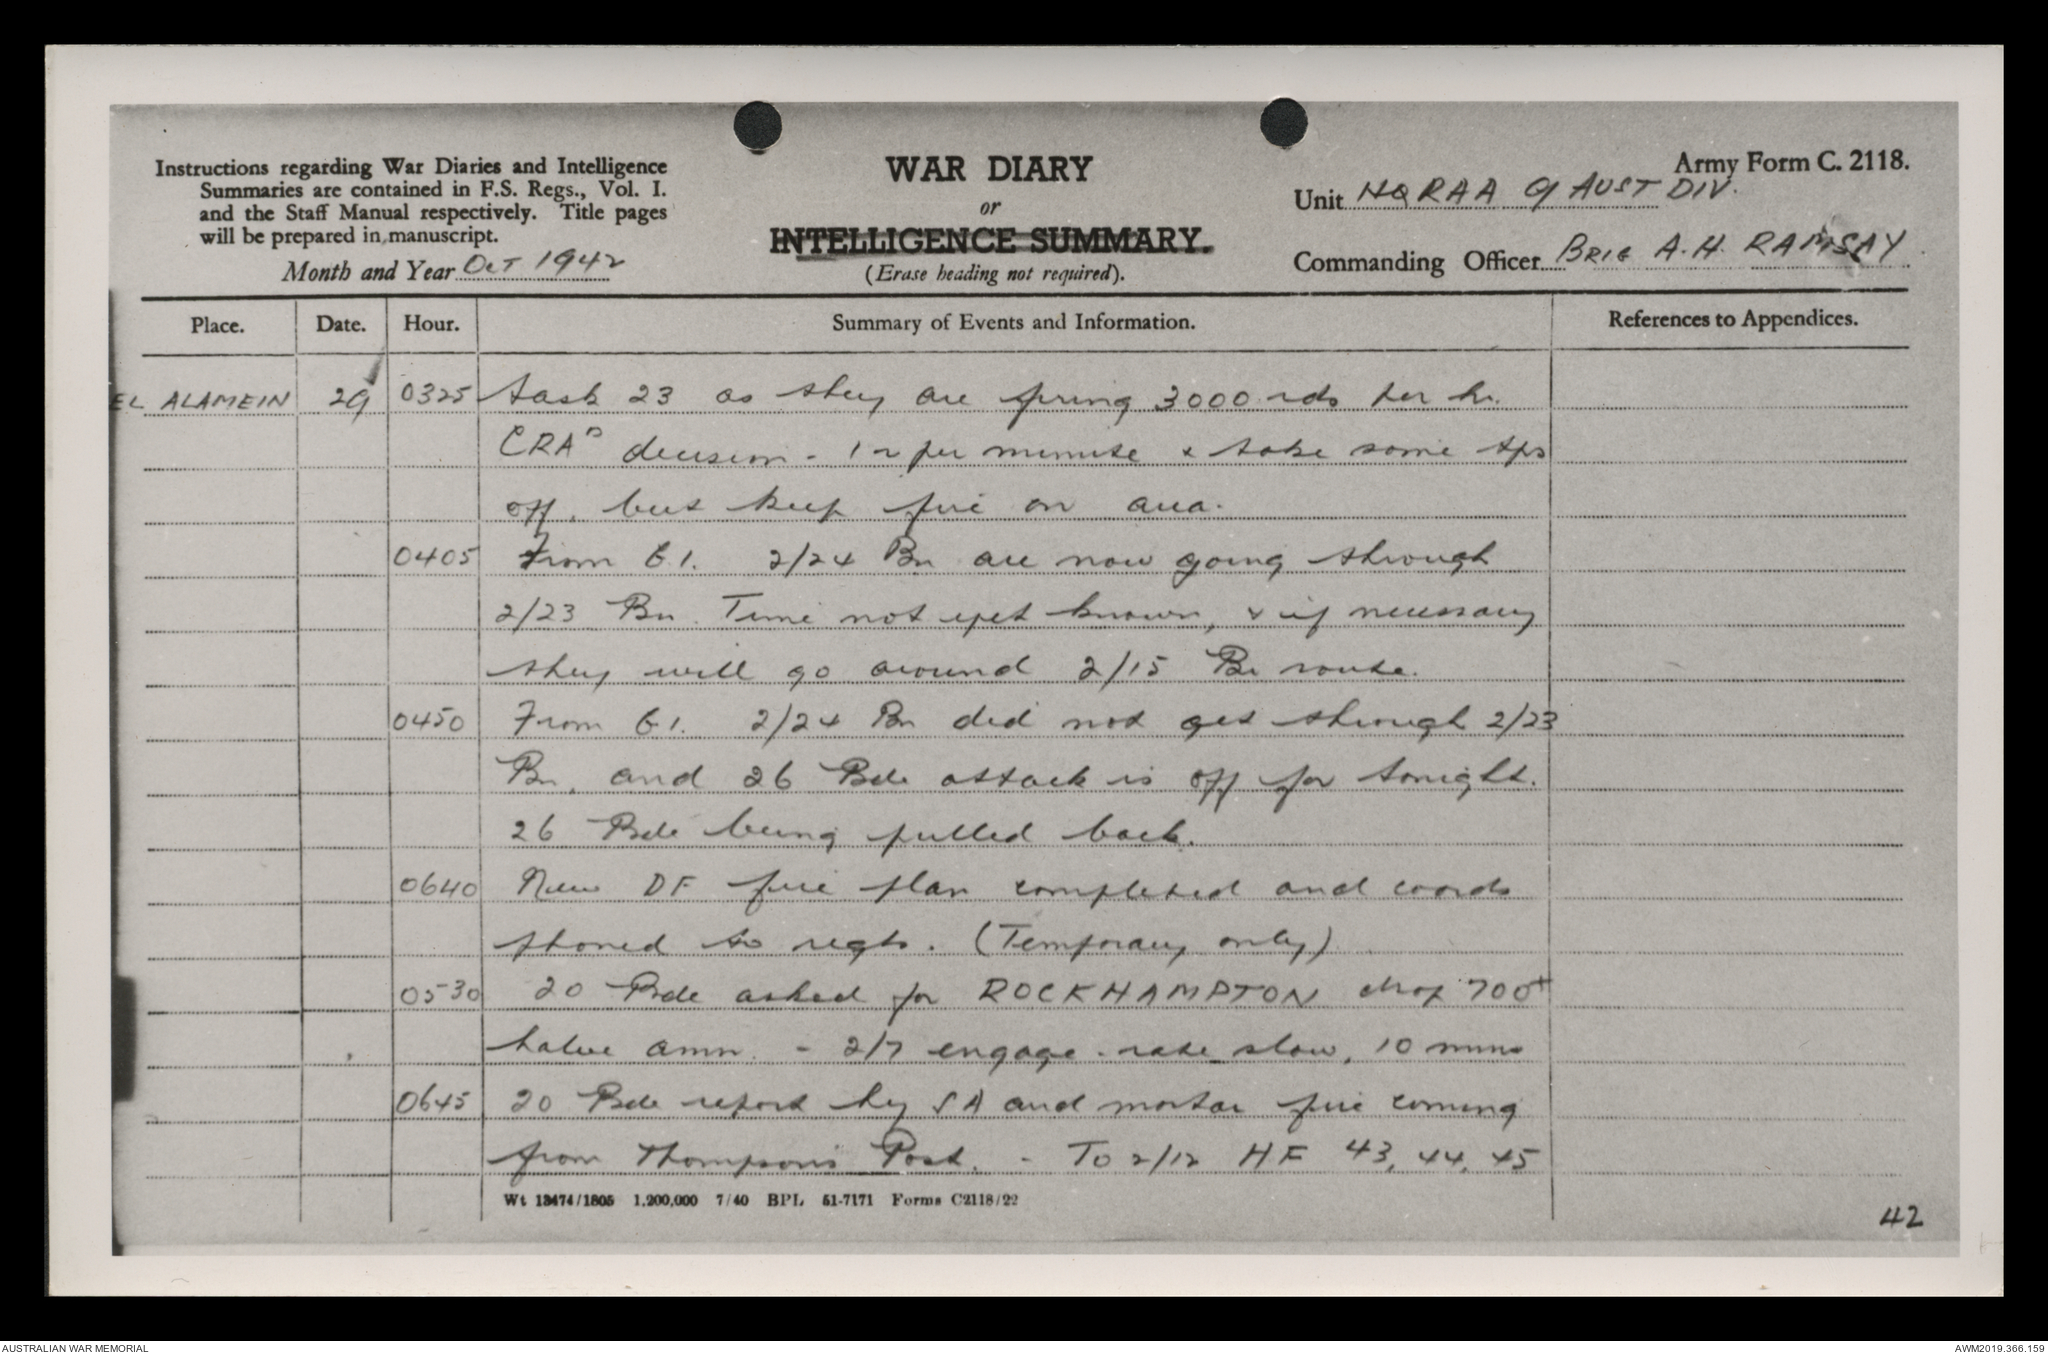 Instructions regarding War Diaries and Intelligence
Summaries are contained in F.S. Regs., Vol. I.
and the Staff Manual respectively. Title pages
will be prepared in manuscript.
Month and Year Oct 1942
WAR DIARY
or
INTELLIGENCE SUMMARY.
(Erase heading not required).
Army Form C. 2118.
Unit HQ RAA 9 AUST DIV.
Commanding Officer BRIG A.H. RAMSAY
Place. Date. Hour. Summary of Events and Information. References to Appendices.
EL ALAMEIN 29 0325 task 23 as they are firing 3000 rds per hr.
CRA's decision - 1 r per minute & take some tps
off, but keep fire on area.
0405 From G1. 2/24 Bn are now going through
2/23 Bn. Time not yet known, & if necessary
they will go around 2/15 Bn route.
0450 From G1. 2/24 Bn did not get through 2/23
Bn, and 26 Bde attack is off for tonight.
26 Bde being pulled back.
0640 New DF fire plan completed and coords
phoned to regts. (Temporary only)
0530 20 Bde asked for ROCKHAMPTON drop 700+
halve amn. - 2/7 engage - rate slow, 10 mins
0645 20 Bde report hy SA and mortar fire coming
from Thompson's Post. - To 2/12 HF 43, 44, 45
Wt 13474/1805 1,200,000 7/40 BPL 51-7171 Forms C2118/22
42
AUSTRALIAN WAR MEMORIAL
AWM2019.366.159